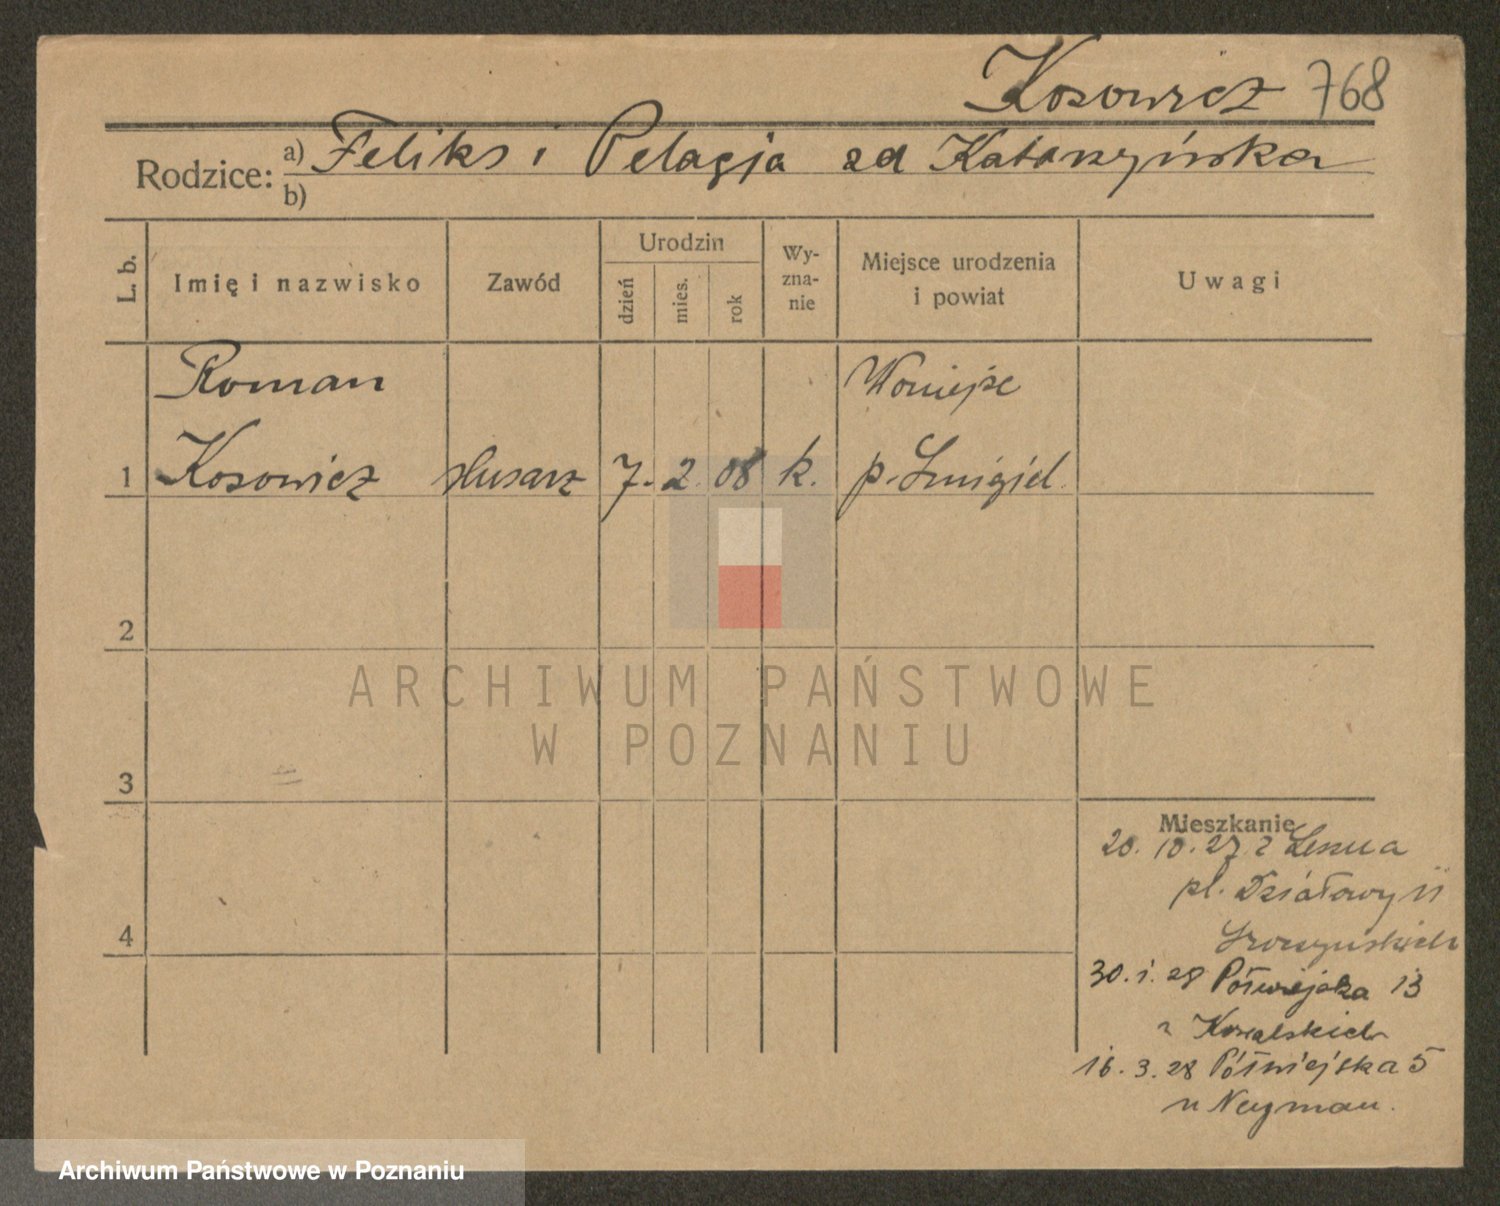 Kosowicz 768
Rodzice: a) Feliks i Pelagja zd Katarzyńska
b)
L. b.
Imię i nazwisko
Zawód
Urodzin
dzień
mies.
rok
Wy-
zna-
nie
Miejsce urodzenia
i powiat
Uwagi
Roman
Woniejść
1 Kosowicz ślusarz 7. 2. 08 k. p. Śmigiel
2
3
4
ARCHIWUM PAŃSTWOWE
W POZNANIU
Mieszkanie
20. 10. 27 z Leszna
pl. Działowy 11
30. 1. 28 Półwiejska 13
Kowalskich
16. 3. 28 Półwiejska 5
u Neyman.
Archiwum Państwowe w Poznaniu